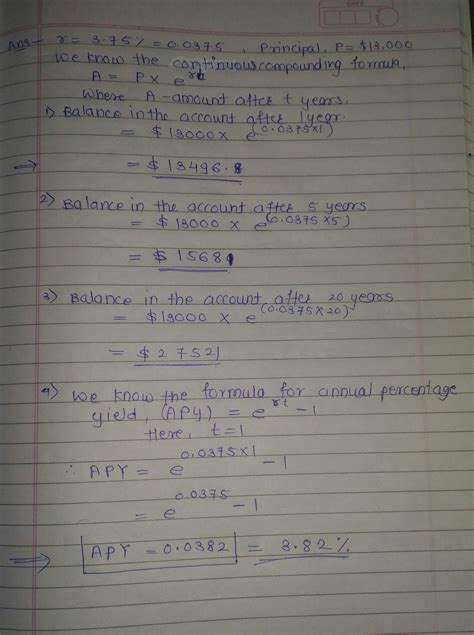 Ans- r = 3.75% = 0.0375 , Principal, P = $13,000
We know the continuous compounding formula,
A = P x e^rt
Where A - amount after t years.
1) Balance in the account after 1 year.
= $ 13000 x e^(0.0375x1)
⇒ = $ 13496.8
2) Balance in the account after 5 years
= $ 13000 x e^(0.0375 x5)
= $ 15681
3) Balance in the account after 20 years
= $13000 x e^(0.0375 x 20)
= $ 27521
4) We know the formula for annual percentage
yield, (APY) = e^rt - 1
Here, t = 1
∴ APY = e^0.0375x1 - 1
= e^0.0375 - 1
⇒ APY = 0.0382 = 3.82%